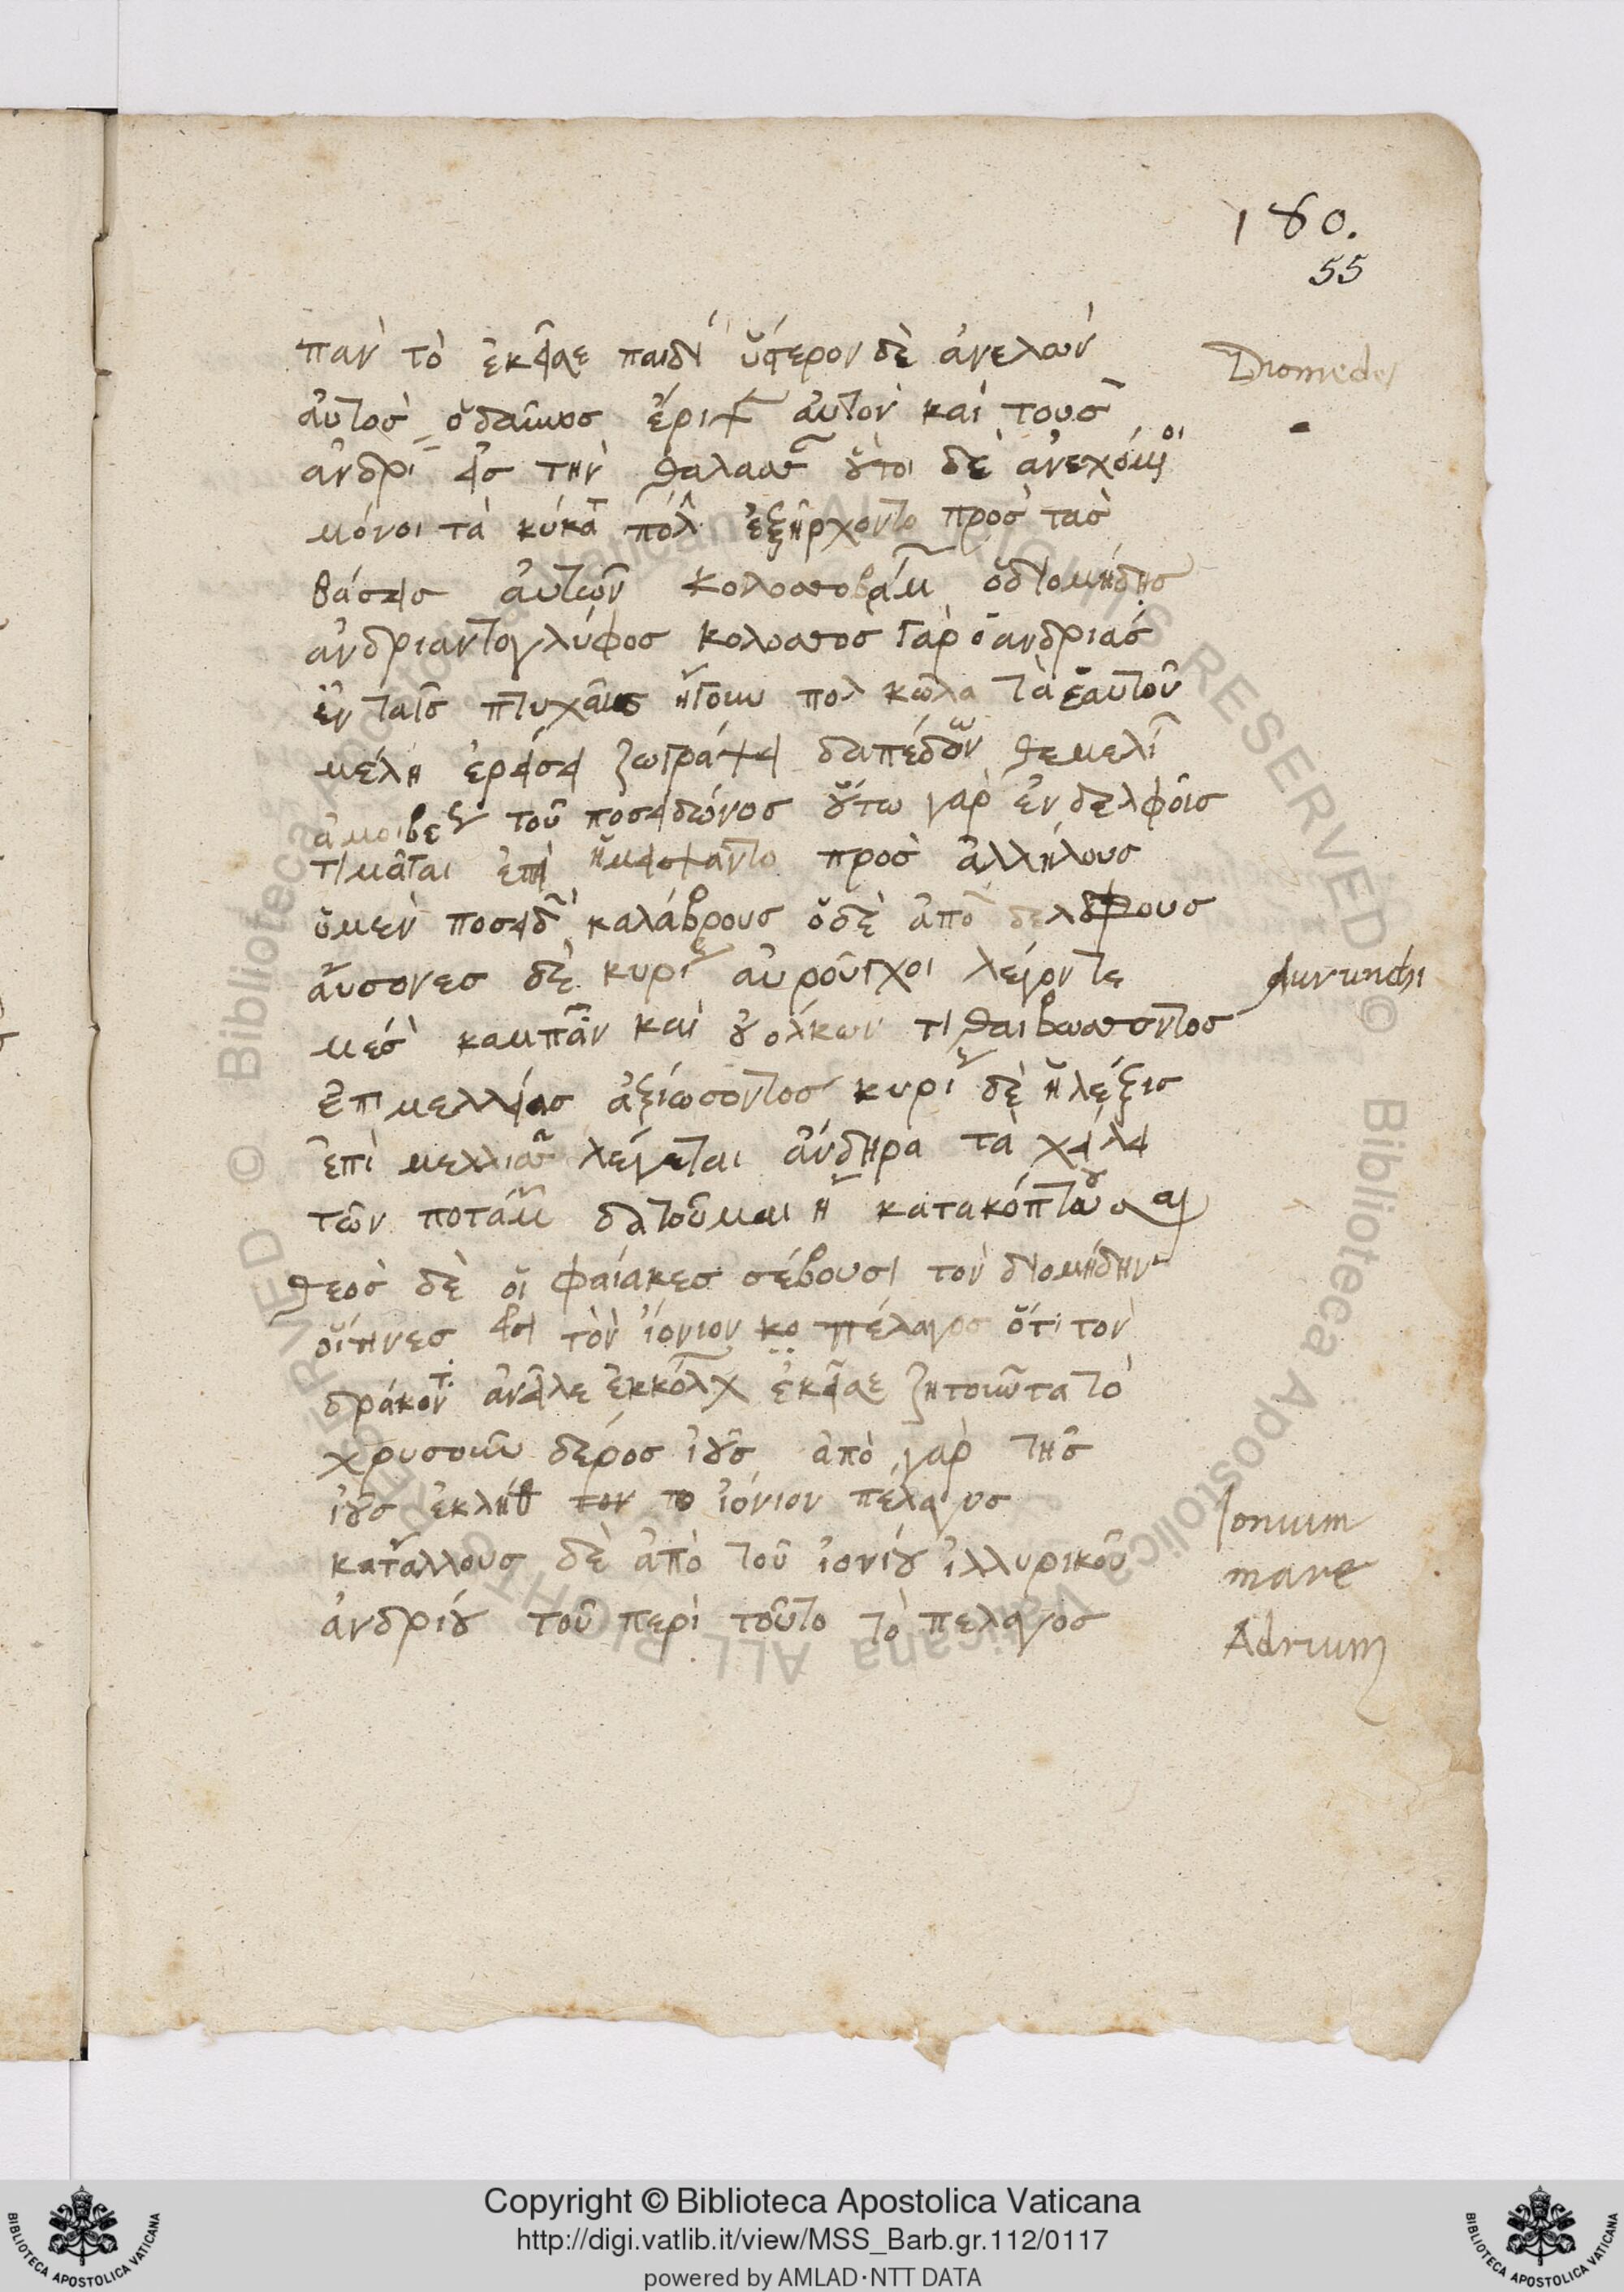 180.
55
παν τὸ ἐκεῖσε παιδί ὕστερον δὲ ἀνελὼν
Diomedes
αὐτὸς ὁ δαῦνος ἔριψ αὐτὸν καὶ τοὺς
ἀνδρι εἰς τὴν θαλασσ οὗτοι δὲ ἀνεχόμ οι
μόνοι τὰ κύματ πάλ ἐξήρχοντο πρὸς τὰς
βάσεις αὐτῶν κολοσσοβάμ ὁ διομήδης
ἀνδριαντογλύφος κολοσσος γὰρ ὁ ανδριὰς
ἐν ταῖς πτυχαῖς ἤγουν πολ κῶλα τὰ ἑαυτοῦ
μέλη ἐρείσει ζωγράψει δαπέδων θεμελί
ἀμοιβεὺς τοῦ ποσειδῶνος οὕτω γὰρ ἐν δελφοῖς
τιμᾶται ἐπεὶ ἠμείψαντο πρὸς ἀλλήλους
ὁ μὲν ποσειδ καλάβρους ὁ δὲ ἀπο δελφους
αὔσονες δὲ κυρι αὐροῦγκοι λέγοντ
Aurunchi
μέσ καμπαν καὶ οὐολκων τιθαιβωσσοντος
ἐπιμελλείας ἀξιώσοντος κυρι δὲ ἡ λέξις
ἐπὶ μελλισσ λέγεται ἄνδηρα τὰ χείλη
τῶν ποταμ δατοῦμαι ἢ κατακόπτουσαι
θεὸς δὲ οἱ φαίακες σέβουσι τὸν διομήδην
οἵτινες εἰσι τὸν ἰόνιον κο πέλαγος ὅτι τὸν
δράκοντ ἀνεῖλε ἐκ κόλχ ἐκεῖσε ζητοῦντα τὸ
χρυσοῦν δέρος ἰοῦς ἀπὸ γὰρ τῆς
ἰοῦς ἐκλήθ τον το ἰόνιον πέλαγος
Ionium
κατ ἄλλους δὲ ἀπὸ τοῦ ἰονίου ἰλλυρικοῦ
mare
ἀνδρίου τοῦ περὶ τοῦτο τὸ πελαγὸς
Adrium
Copyright © Biblioteca Apostolica Vaticana
http://digi.vatlib.it/view/MSS_Barb.gr.112/0117
powered by AMLAD·NTT DATA